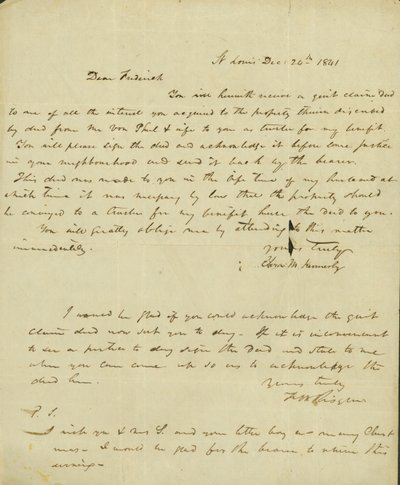 St Louis Dec: 24th 1841
Dear Frederick
You will herewith receive a quit claim deed
to me of all the interest you acquired to the property therein described
by deed from Mr Von Phul & wife to you as trustee for my benefit.
You will please sign the deed and acknowledge it before some justice
in your neighbourhood and send it back by the bearer.
This deed was made to you in the life time of my husband at
which time it was necessary by law that the property should
be conveyed to a trustee for my benefit hence the deed to you.
You will greatly oblige me by attending to this matter
immediately.
yours truly
M. Kennerly
I would be glad if you could acknowledge the quit
claim deed now sent you to day. If it is inconvenient
to see a justice to day sign the deed and state to me
when you can come up so as to acknowledge the
deed here.
Yours truly
P. S.
I wish you & mrs S. and your little boy a merry Christ
mas. I would be glad for the bearer to return this
evening.